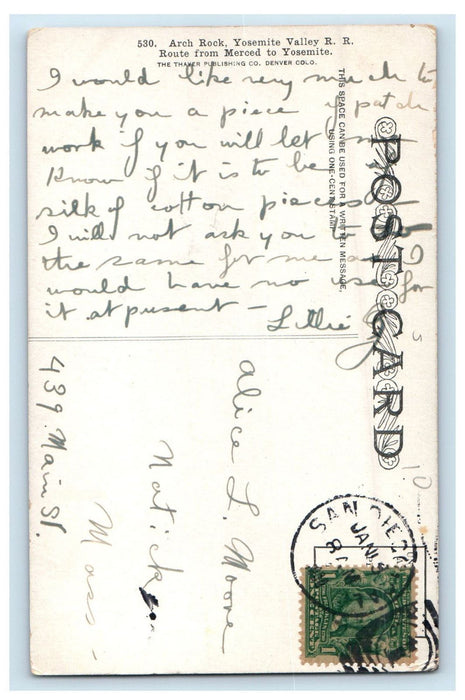 530. Arch Rock, Yosemite Valley R. R.
Route from Merced to Yosemite.
THE THAYER PUBLISHING CO. DENVER COLO.
I would like very much to
make you a piece of patch
work if you will let me
know if it is to be
silk of cotton pieces
I will not ask you to do
the same for me as I
would have no use for
it at present —
Lillie
THIS SPACE CAN BE USED FOR A WRITTEN MESSAGE,
USING ONE-CENT STAMP.
POST CARD
Alice L. Moore
Natick
Mass —
439 Main St.
10
5
SAN DIEGO
JAN
8
1